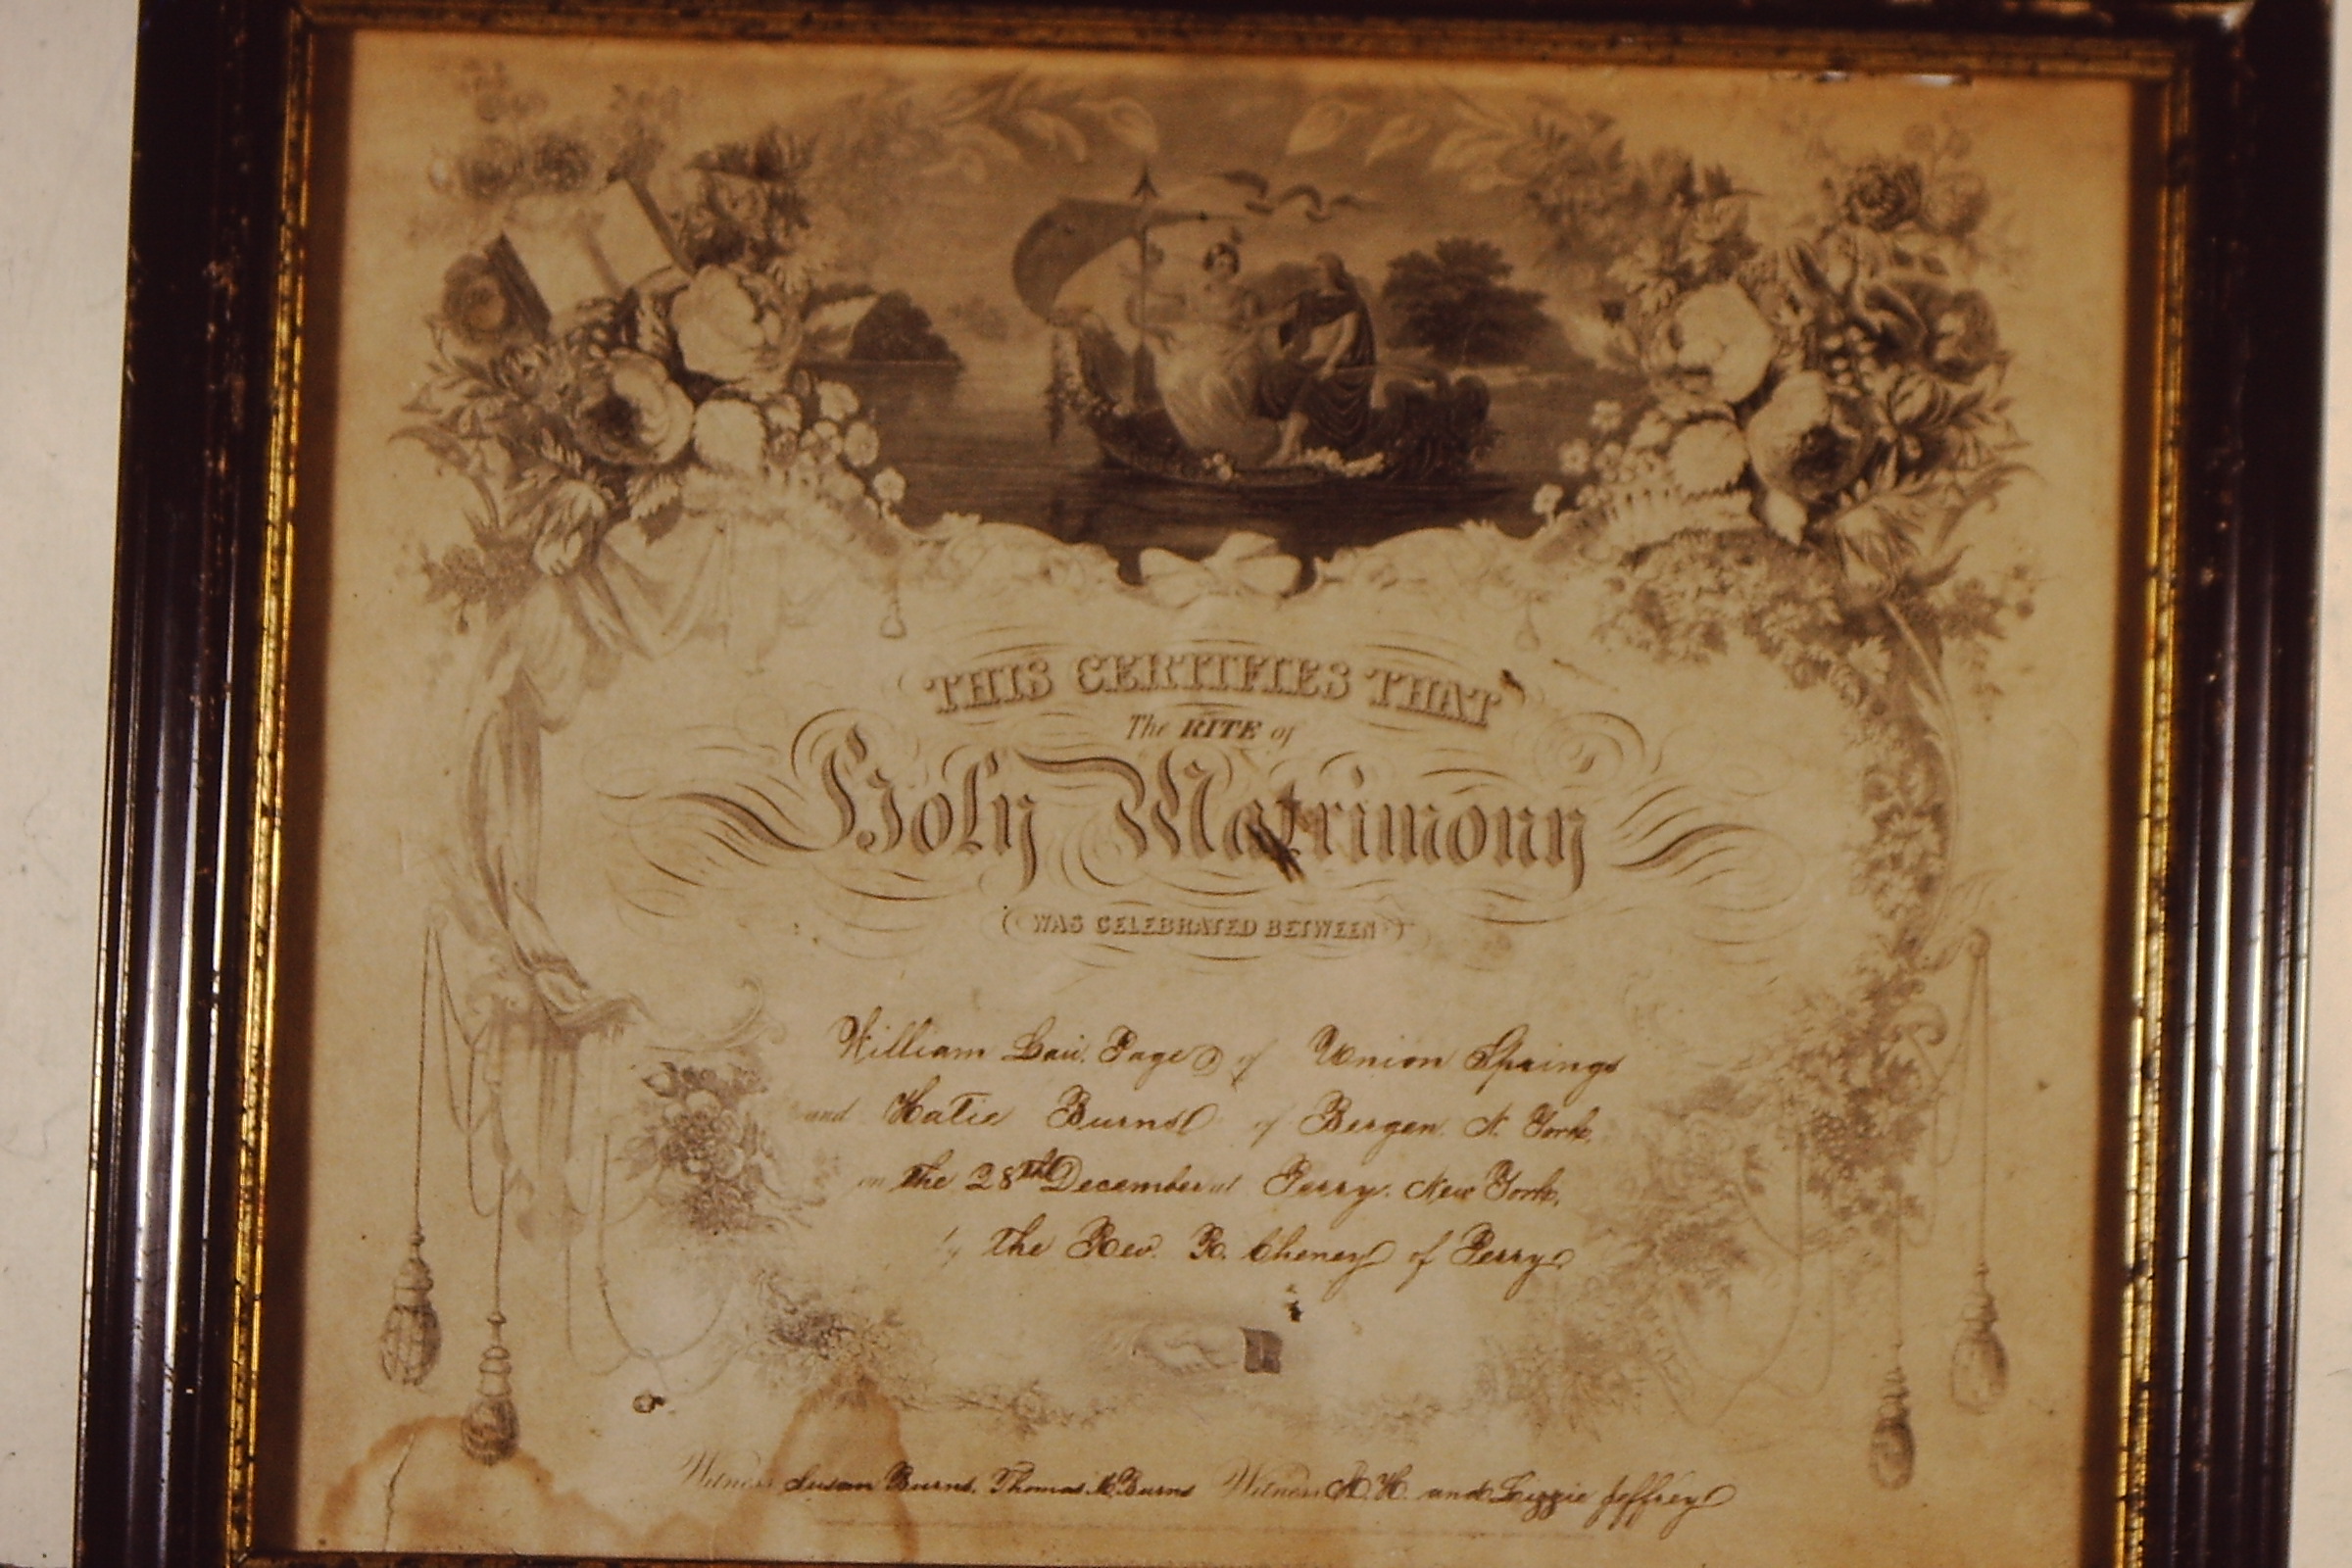 THIS CERTIFIES THAT
The RITE of
Holy Matrimony
(WAS CELEBRATED BETWEEN)
William Page of Union Springs
and Katie Burns of Bergen. N. York.
on the 28th December at Perry. New York.
by the Rev. R. Cheney of Perry
Witness Susan Burns. Thomas Burns Witness A. H. and Lizzie Jeffrey